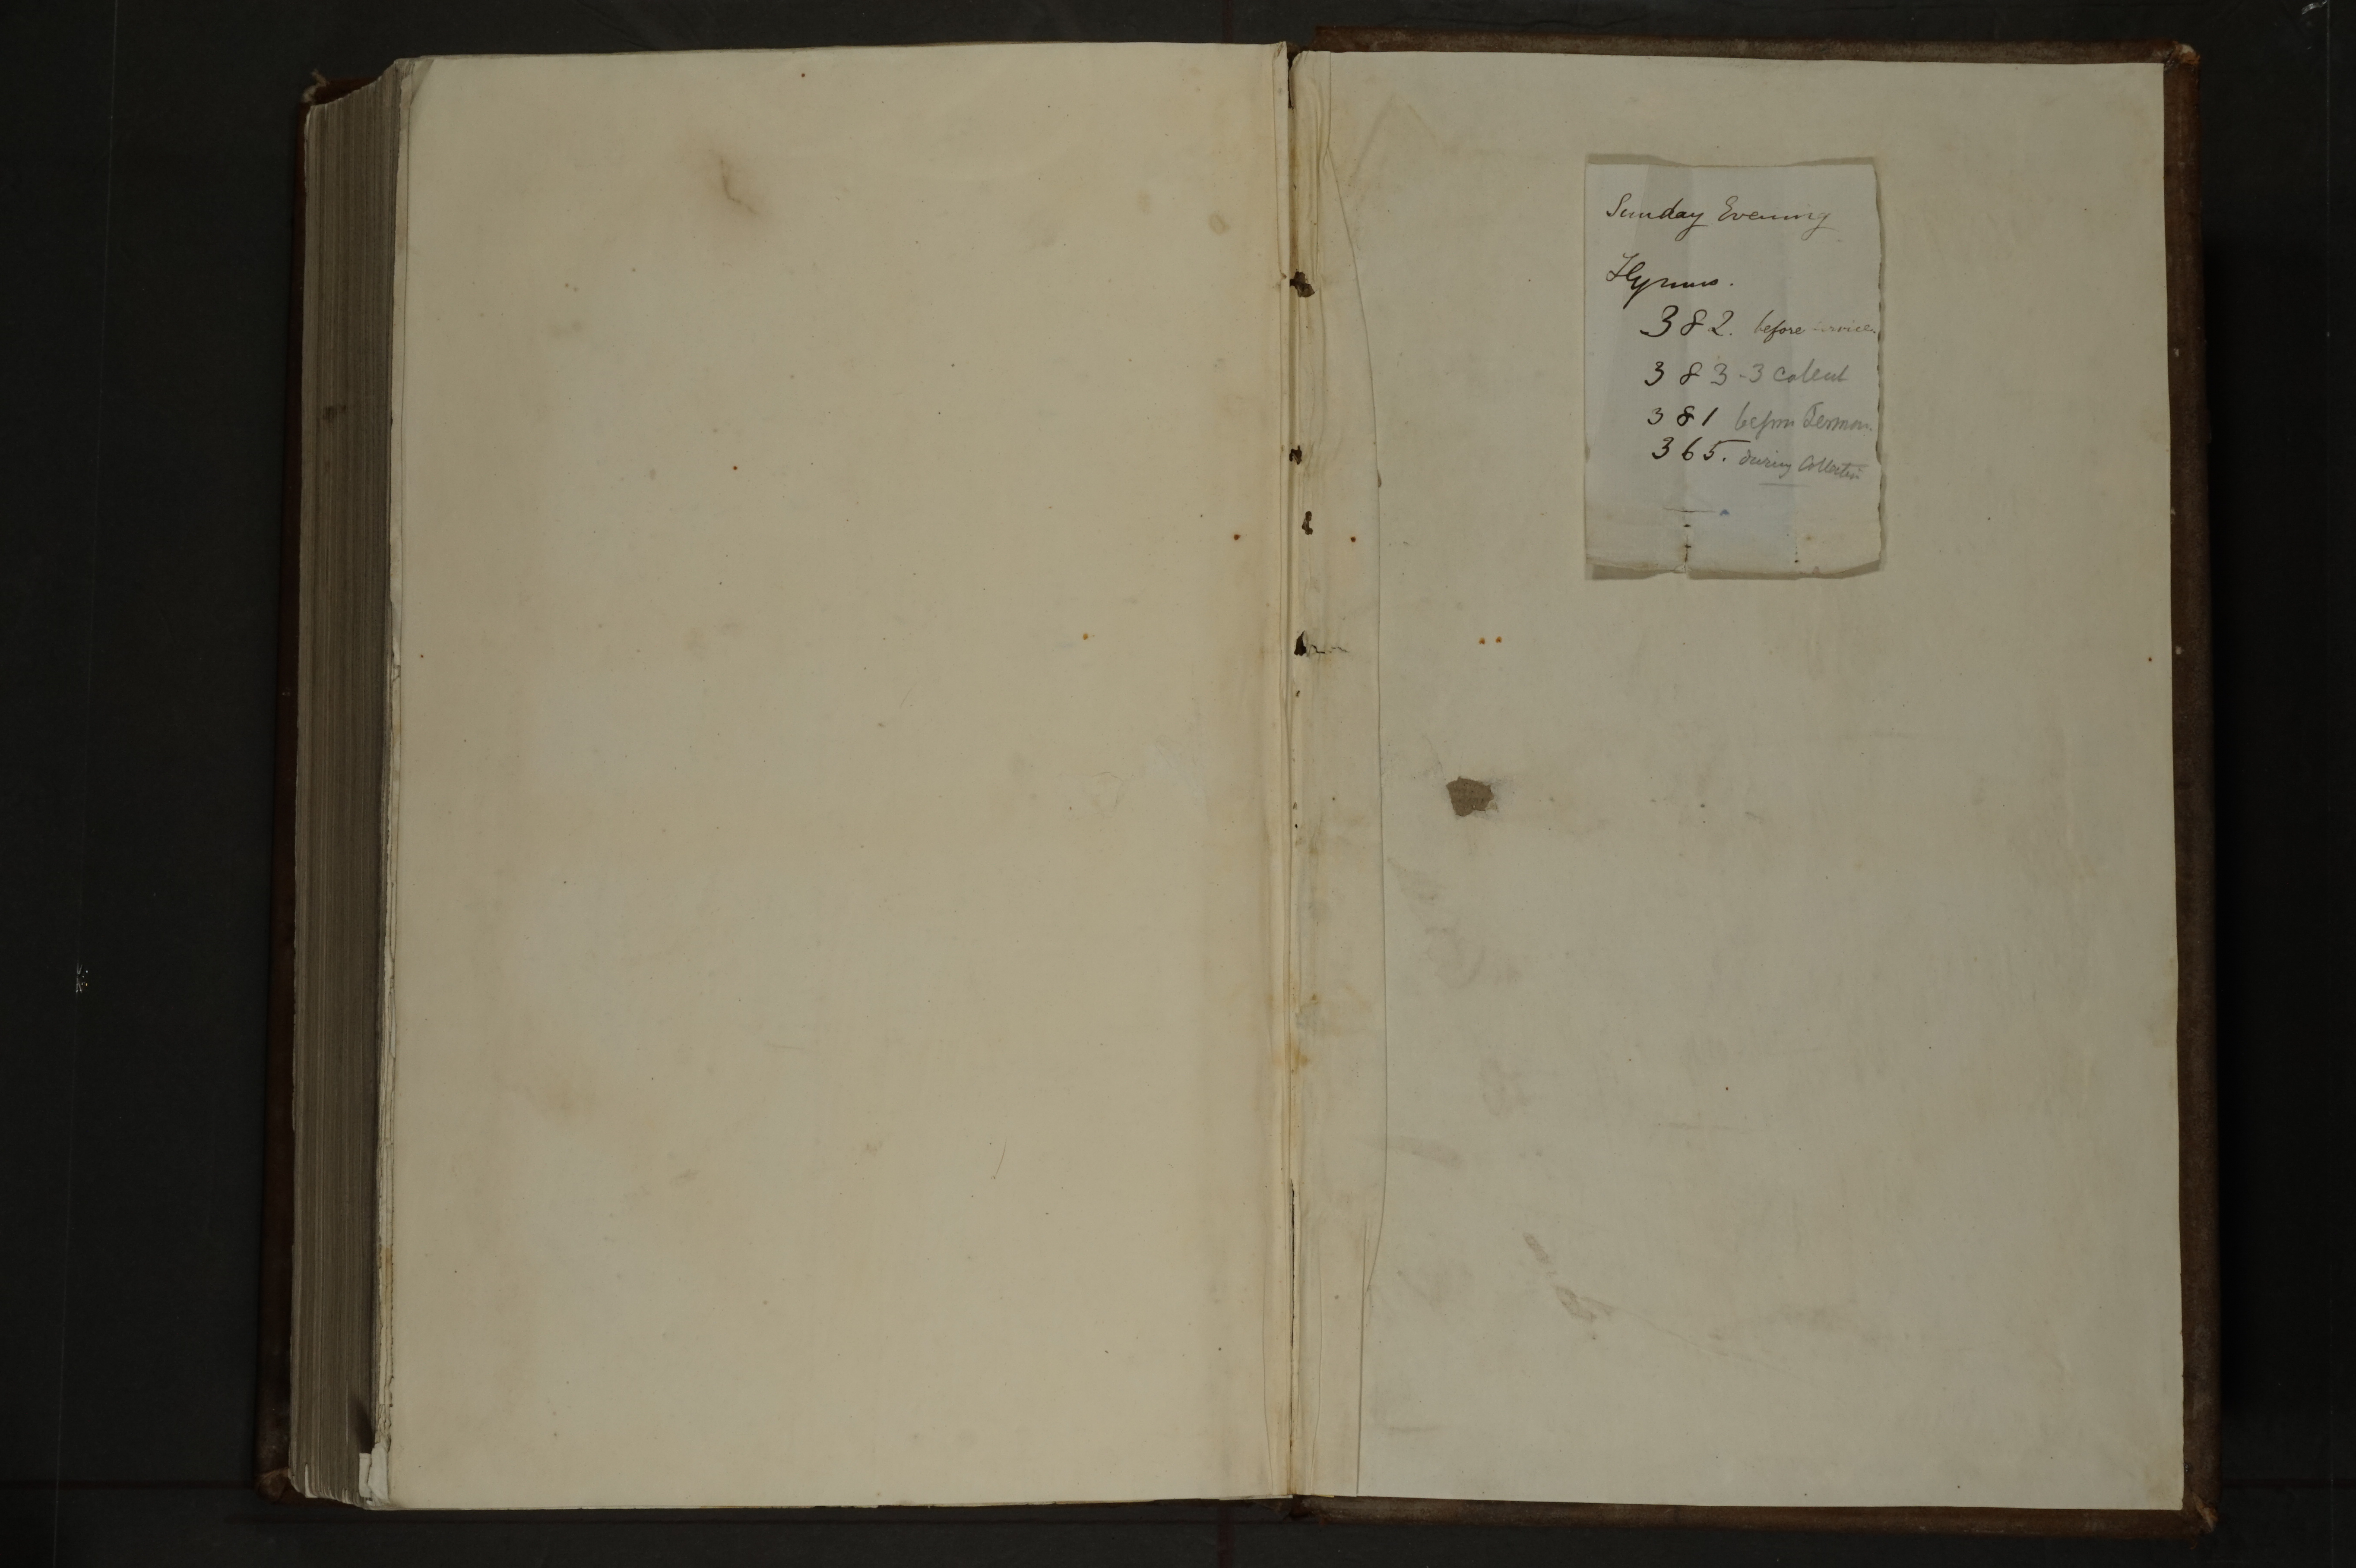 Sunday Evening
Hymns.
382. before service.
383 - 3 Collect
381 before Sermon.
365. during Collection